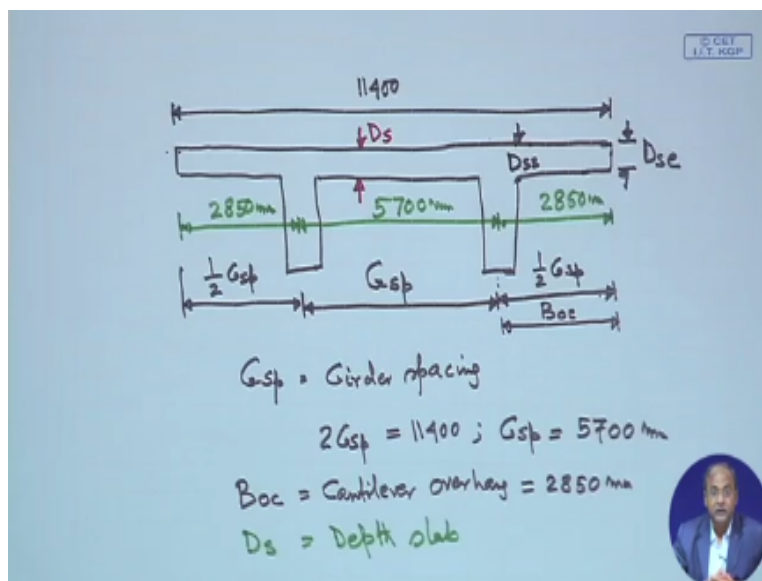 © CET
I.I.T. KGP
11400
Ds
Dss
Dse
2850 mm
5700 mm
2850 mm
1/2 Gsp
Gsp
1/2 Gsp
Boc
Gsp = Girder spacing
2Gsp = 11400 ; Gsp = 5700 mm
Boc = Cantilever overhang = 2850 mm
Ds = Depth slab